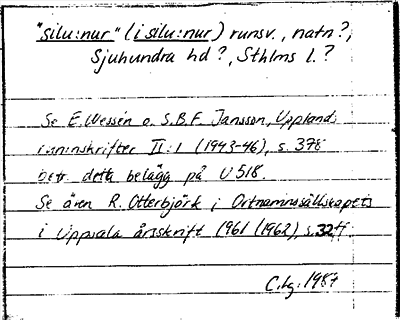 "silu:nur" (i silu:nur) runsv., natn?,
Sjuhundra hd?, Sthlms l.?
Se E. Wessén o. S.B.F. Jansson, Upplands
runinskrifter II:1 (1943-46), s. 378
betr. detta belägg på U 518.
Se även R. Otterbjörk i Ortnamnssällskapets
i Uppsala årsskrift 1961 (1962), s. 32 ff
C.lg. 1987